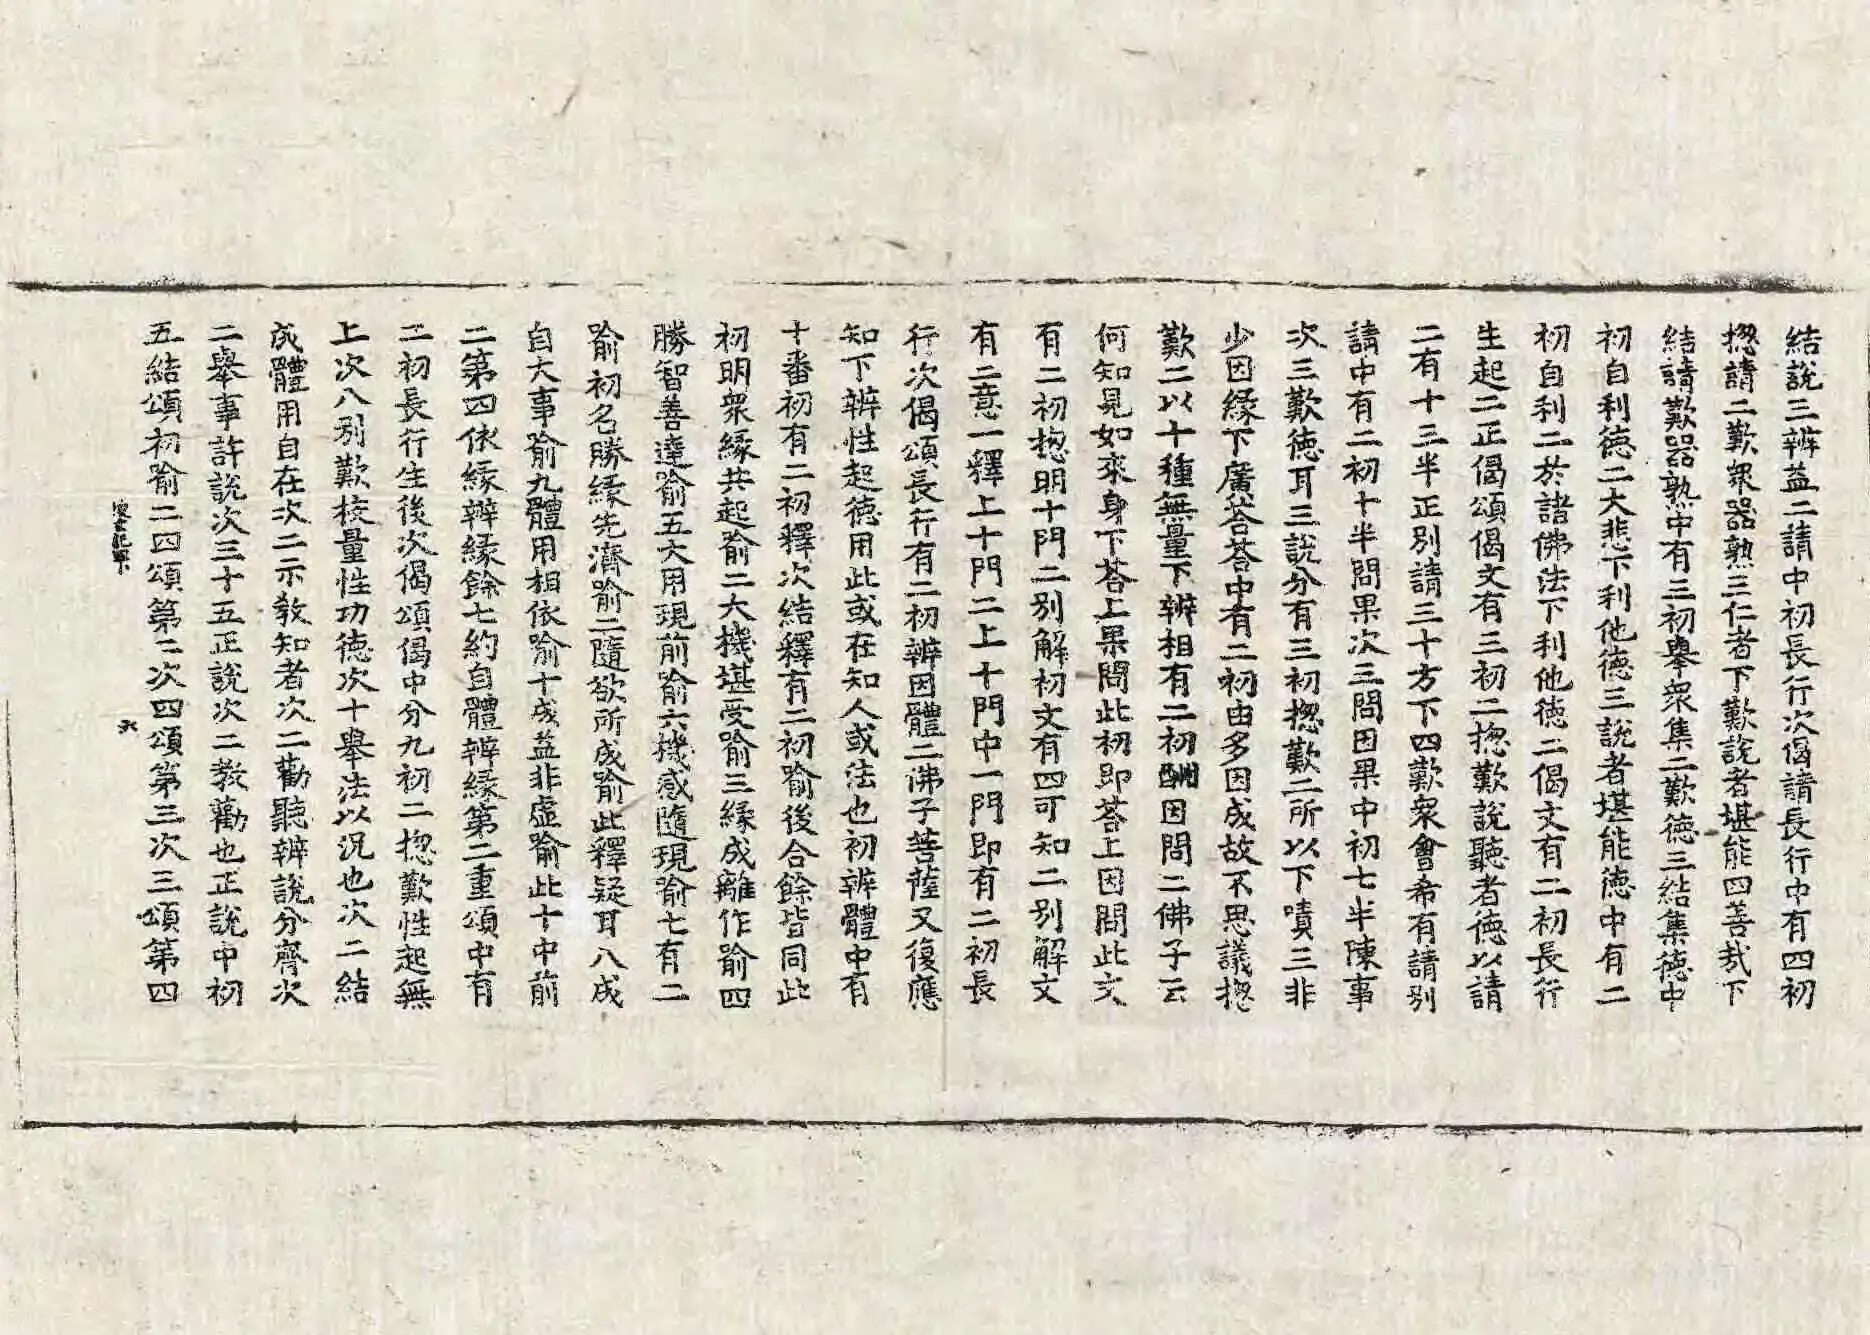 結說三辨益二請中初長行次偈請長行中有四初
揔請二歎衆器熟三仁者下歎說者堪能四善哉下
結請歎器熟中有三初舉衆集二歎德三結集德中
初自利德二大悲下利他德三說者堪能德中有二
初自利二於諸佛法下利他德二偈文有二初長行
生起二正偈頌偈文有三初二揔歎說聽者德以請
二有十三半正別請三十方下四歎衆會希有請別
請中有二初十半問果次三問因果中初七半陳事
次三歎德耳三說分有三初揔歎二所以下嘖三非
少因緣下廣荅荅中有二初由多因成故不思議揔
歎二以十種無量下辨相有二初酬因問二佛子云
何知見如來身下荅上果問此初即荅上因問此文
有二初揔明十門二別解初文有四可知二別解文
有二意一釋上十門二上十門中一門即有二初長
行次偈頌長行有二初辨因體二佛子菩薩又復應
知下辨性起德用此或在知人或法也初辨體中有
十番初有二初釋次結釋有二初喻後合餘皆同此
初明衆緣共起喻二大機堪受喻三緣成離作喻四
勝智善達喻五大用現前喻六機感隨現喻七有二
喻初名勝緣先濟喻二隨欲所成喻此釋疑耳八成
自大事喻九體用相依喻十成益非虛喻此十中前
二第四依緣辨緣餘七約自體辨緣第二重頌中有
二初長行生後次偈頌偈中分九初二揔歎性起無
上次八別歎校量性功德次十舉法以況也次二結
成體用自在次二示教知者次二勸聽辨說分齊次
二舉事許說次三十五正說次二教勸也正說中初
五結頌初喻二四頌第二次四頌第三次三頌第四
六